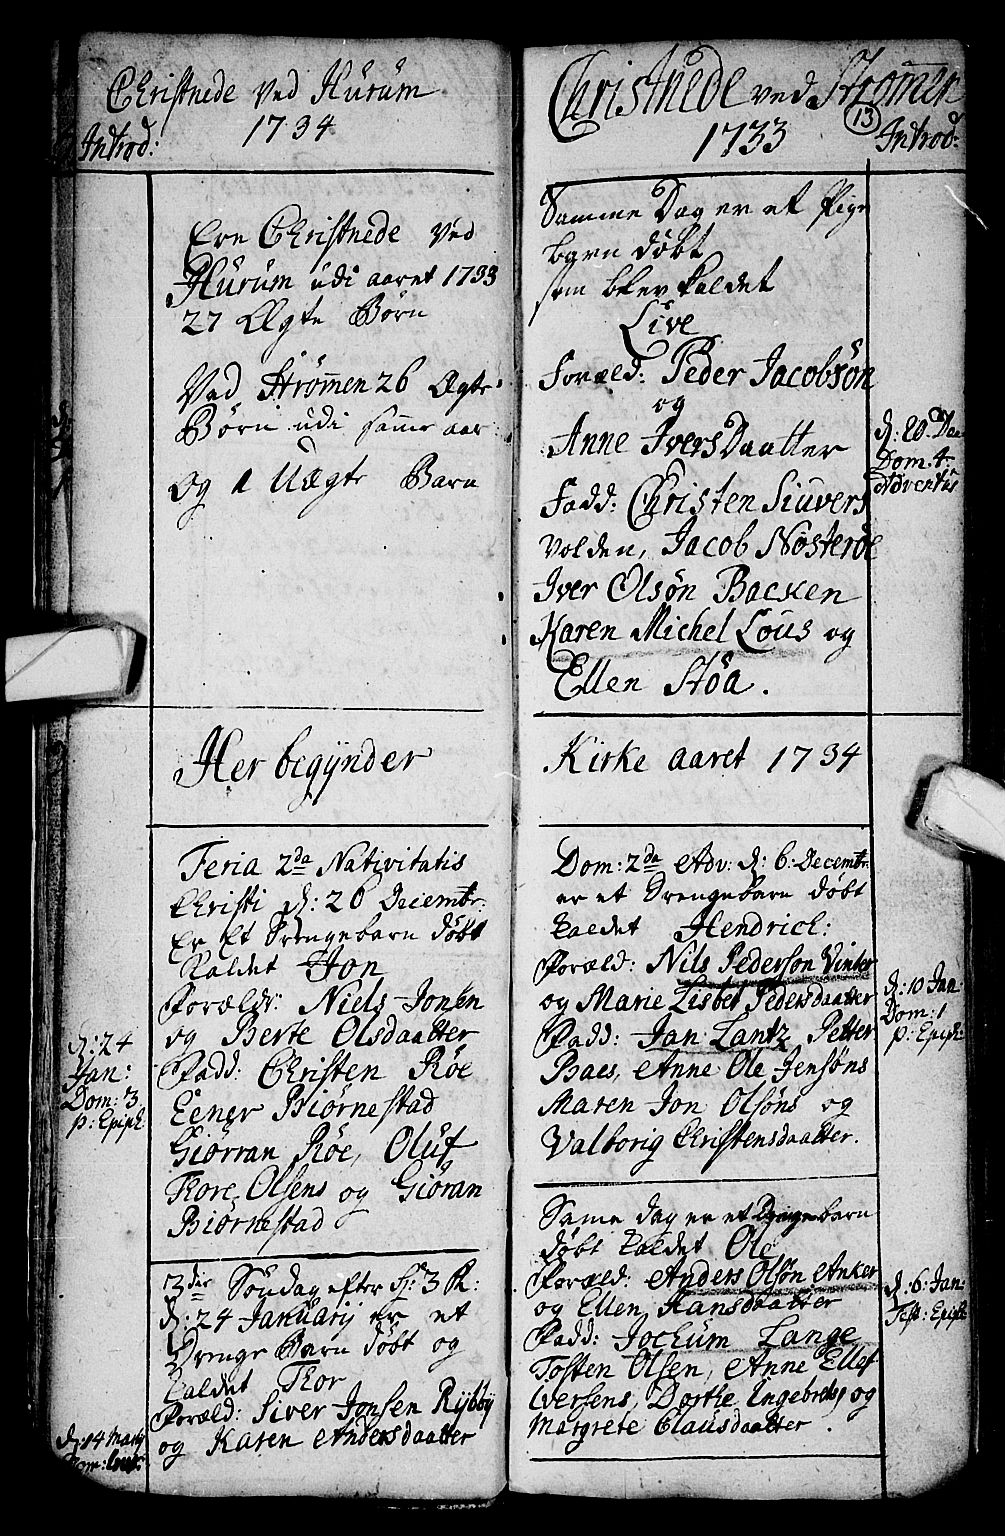 Christnede ved Hurum
1734
Introd:
Ere Christnede ved
Hurum udi aaret 1733
27 Ægte Børn
Ved Strømen 26 Ægte
Børn udi same aar
og 1 Uægte Barn
Her begÿnder
Feria 2da Nativitatis
Christi d: 26 Decembr:
Er Et Drengebarn døbt
Kaldet Jon
Foræld: Niels Jonsen
og Berte Olsdaatter
Fadd: Christen Røe
Eener Biørnestad
Giørran Røe, Oluf
Tore Olsens og Giøran
Biørnestad
d: 24
Jan:
Dom: 3
p: Epiph:
3die Søndag efter H: 3 K:
d: 24 Januarij er et
Drenge Barn døbt og
kaldet Thor
Foræld: Siver Jonsen Rÿbbÿ
og Karen Andersdaatter
d: 14 Martj
Dom:
Christnede ved Strømen
13
1733
Introd:
Samme Dag er et Pige
barn døbt
som blev kaldet
Live
Foræld: Peder Jacobsøn
og
Anne Ivers Daatter
Fadd: Christen Siuvers
Volden, Jacob Nøsteroe
Iver Olsøn Backen
Karen Michel Lous og
Ellen Støa.
d: 20 De
Dom. 4
Adventus
Kirke aaret 1734
Dom: 2da Adv: d: 6: Decembr:
er et Drengebarn døbt
kaldet Hendrich:
Foræld: Nils Pederson Vinter
og Marie Lisbet Pedersdaatter
Fadd: Jan Lantz Petter
Baes, Anne Ole Jensøns
Maren Jon Olsøns og
Valborig Christensdaatter.
d: 10 Jan:
Dom: 1
p: Epiph:
Same dag er et Drengebarn
døbt kaldet Ole
Foræld: Anders Olsøn Anker
og Ellen Hansdaatter
Fadd: Jochum Lange
Tosten Olsen, Anne Ellef
Iversens, Dorthe Engebrets, og
Margrete Clausdaatter.
d. 6. Jan:
Fest: Epiph: